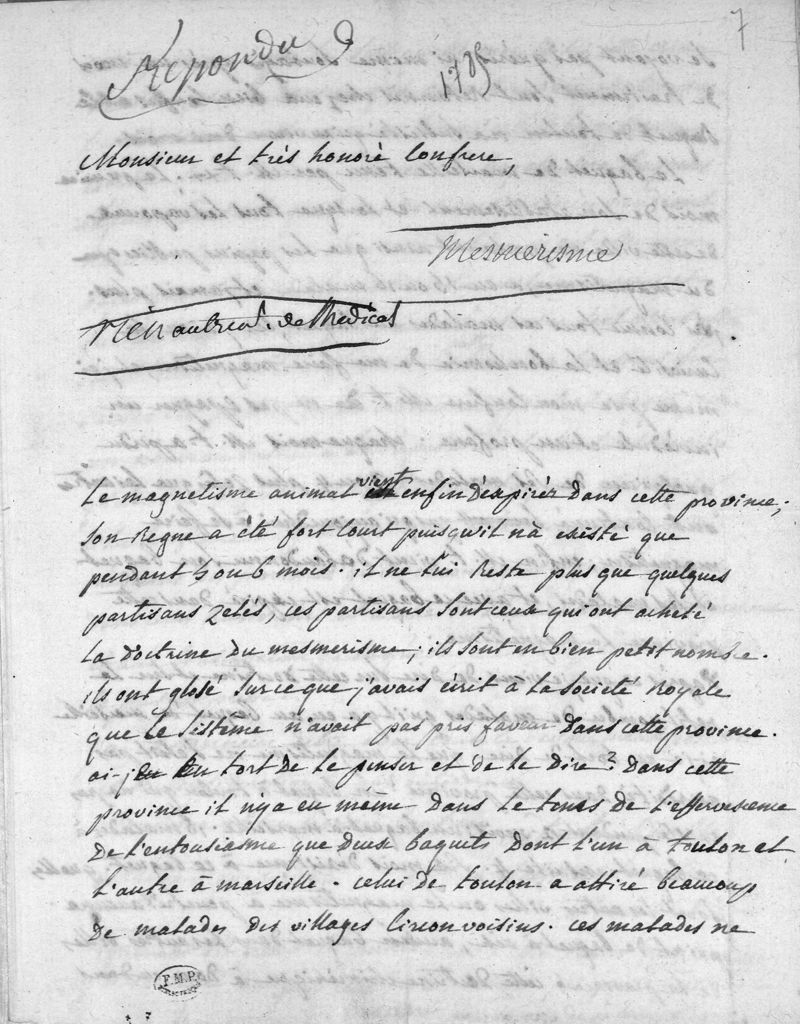 7
Repondu
1785
Monsieur et très honoré Confrere,
Mesmerisme
de Medical
Le magnetisme animal vient enfin d'expirér dans cette province;
son regne a été fort Court puisqu'il n'à existé que
pendant 5 ou 6 mois. il ne lui reste plus que quelques
partisans zelés, ces partisans sont ceux qui ont acheté
la doctrine du mesmerisme; ils sont en bien petit nombre.
ils ont glosé sur ce que j'avais écrit à la Societé royale
que le Sistême n'avait pas pris faveur dans cette province.
ai-je eu tort de le penser et de le dire? dans cette
province il n'y a eu même dans le tems de l'effervescence
de l'entousiasme que deux baquets dont l'un à toulon et
l'autre à marseille. celui de toulon a attiré beaucoup
de malades des villages Circonvoisins. ces malades ne
F.M.P.